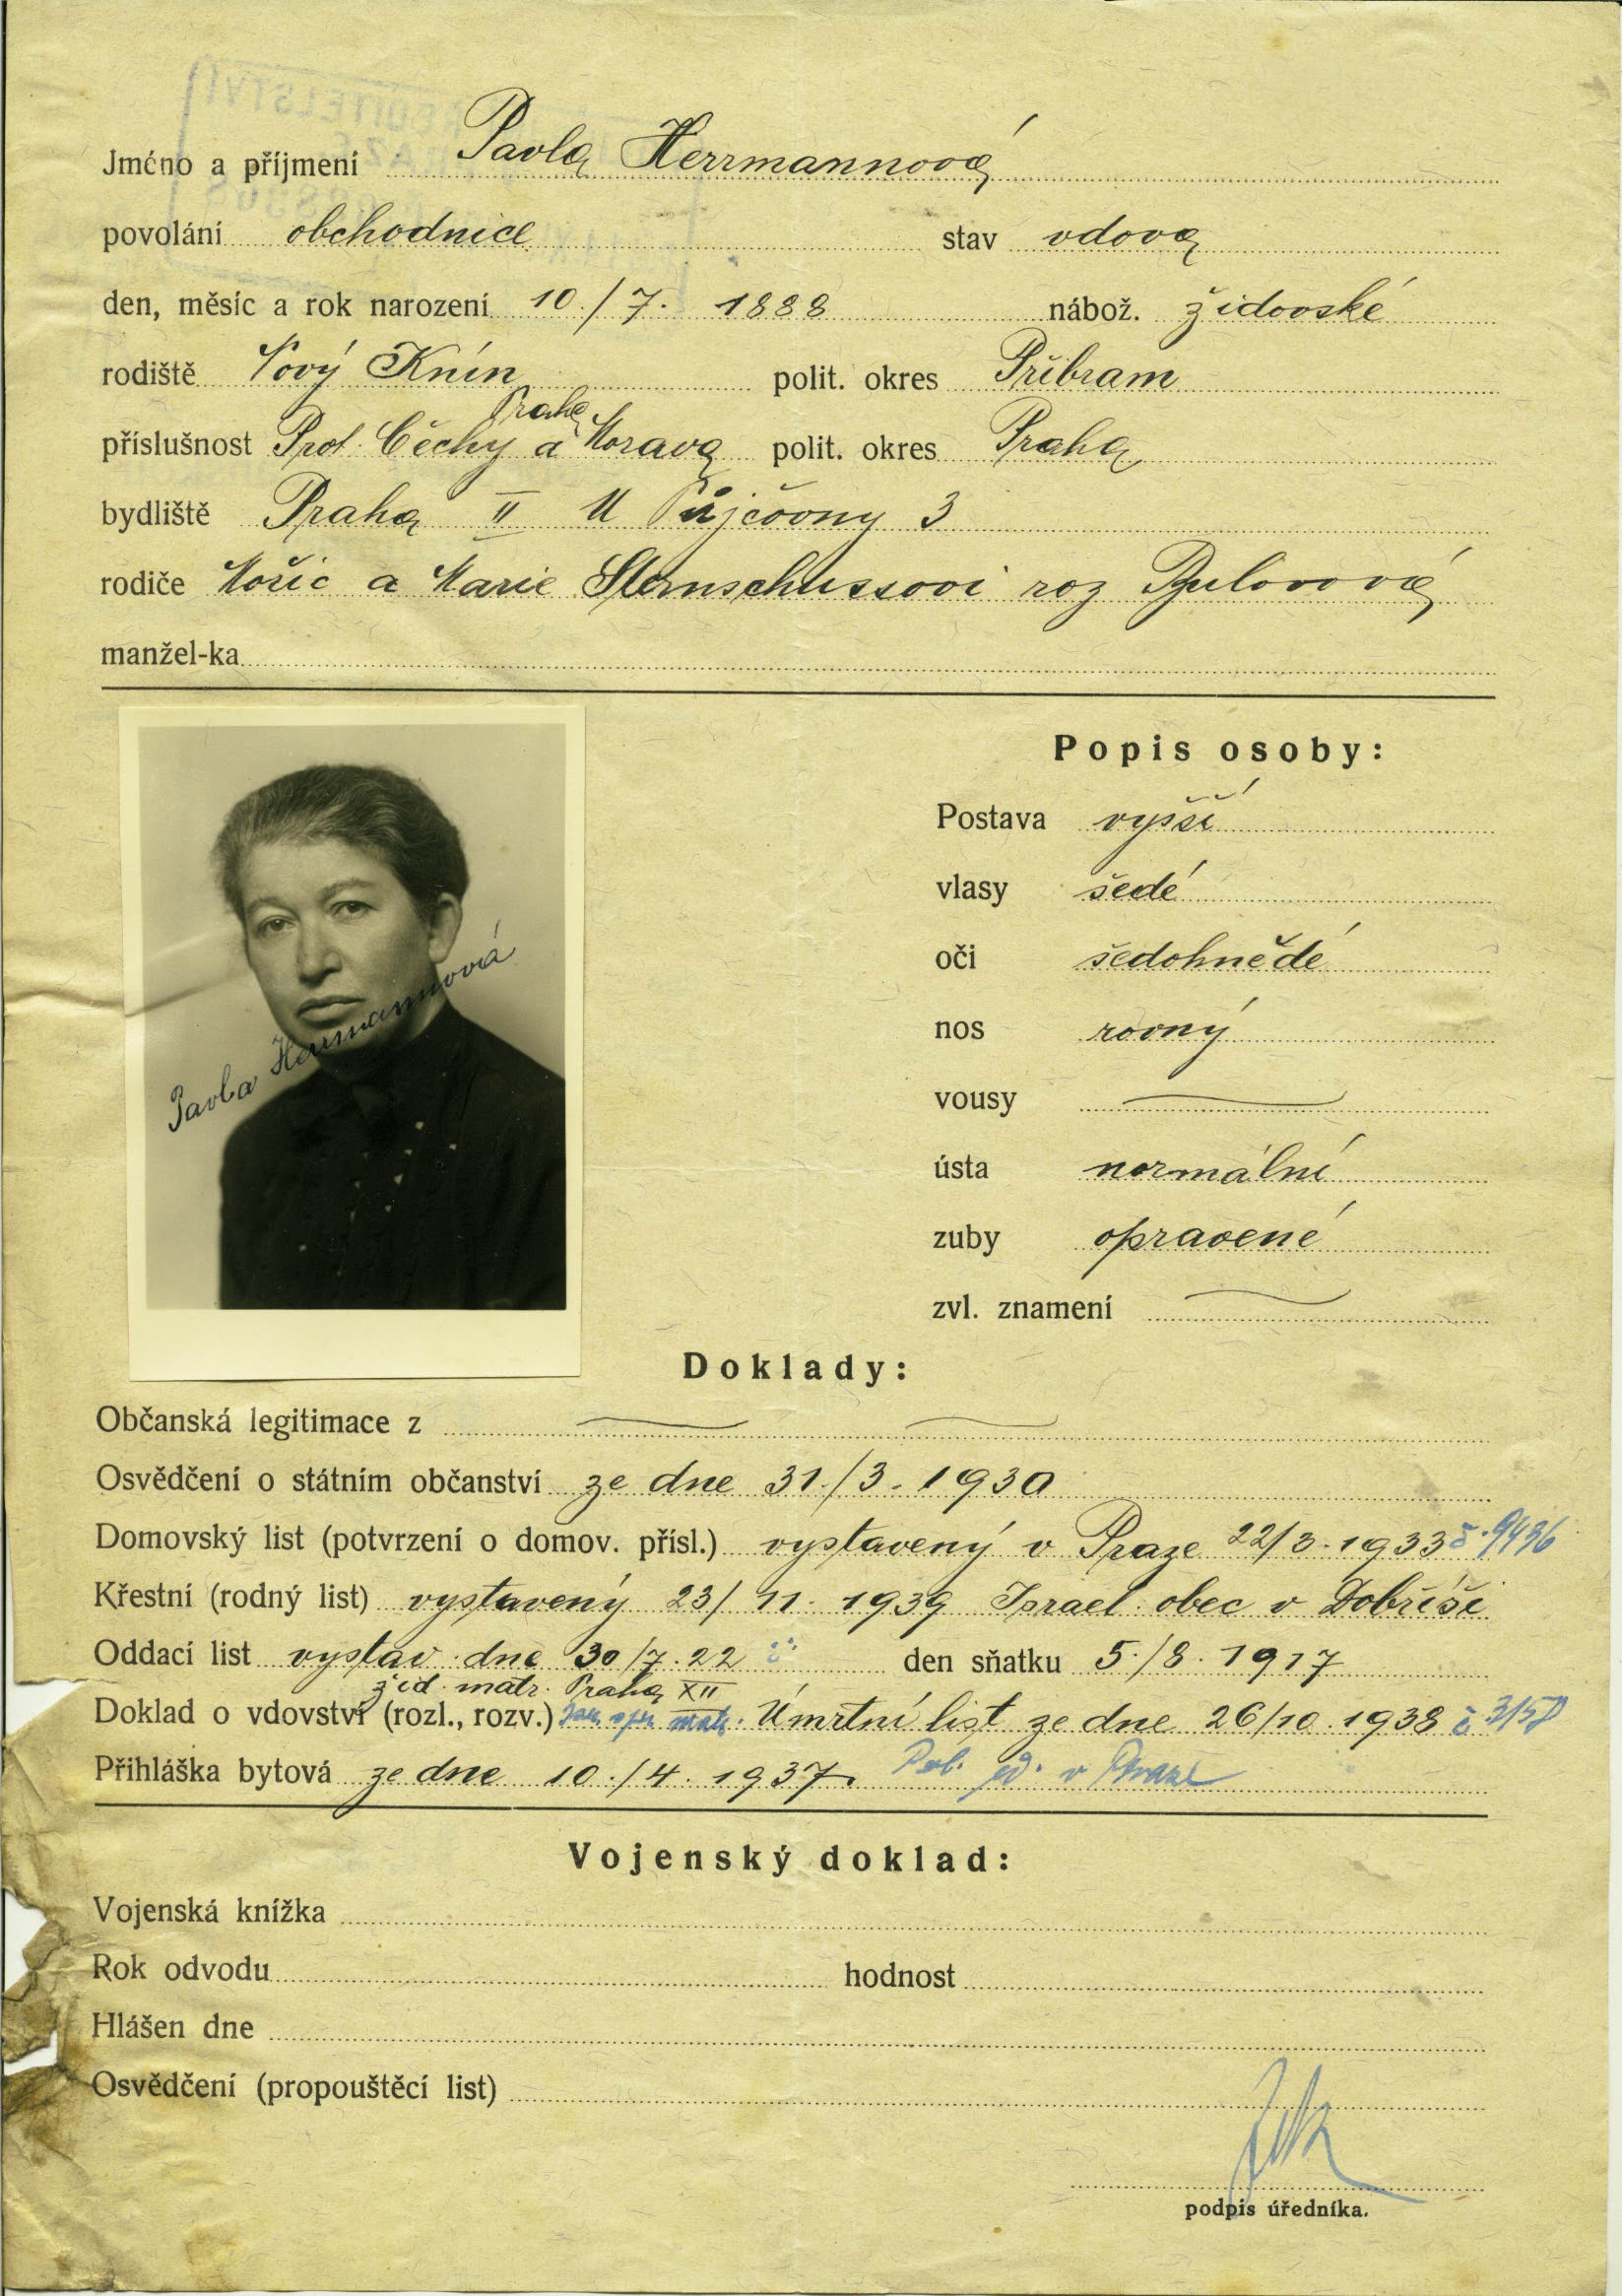 Jméno a příjmení Pavla Herrmannová
povolání obchodnice stav vdova
den, měsíc a rok narození 10./7. 1888 nábož. židovské
rodiště Nový Knín polit. okres Příbram
Praha
příslušnost Prot. Čechy a Morava polit. okres Praha
bydliště Praha II U Půjčovny 3
rodiče Mořic a Marie Sternschussovi roz
manžel-ka
Popis osoby:
Postava vyšší
vlasy šedé
oči šedohnědé
nos rovný
vousy
ústa normální
zuby opravené
zvl. znamení
Pavla Herrmannová
Doklady:
Občanská legitimace z
Osvědčení o státním občanství ze dne 31./3. 1930
Domovský list (potvrzení o domov. přísl.) vystavený v Praze 22/3. 1933 č. 9436
Křestní (rodný list) vystavený 23/11. 1939 Israel. obec v Dobříši
Oddací list vystav. dne 30/7. 22 den sňatku 5./8. 1917
žid. matr. Praha XII
Doklad o vdovství (rozl., rozv.) matr. Úmrtní list ze dne 26/10. 1938 č
Přihláška bytová ze dne 10./4. 1937. Pol. ř. v Praze
Vojenský doklad:
Vojenská knížka
Rok odvodu hodnost
Hlášen dne
Osvědčení (propouštěcí list)
podpis úředníka.